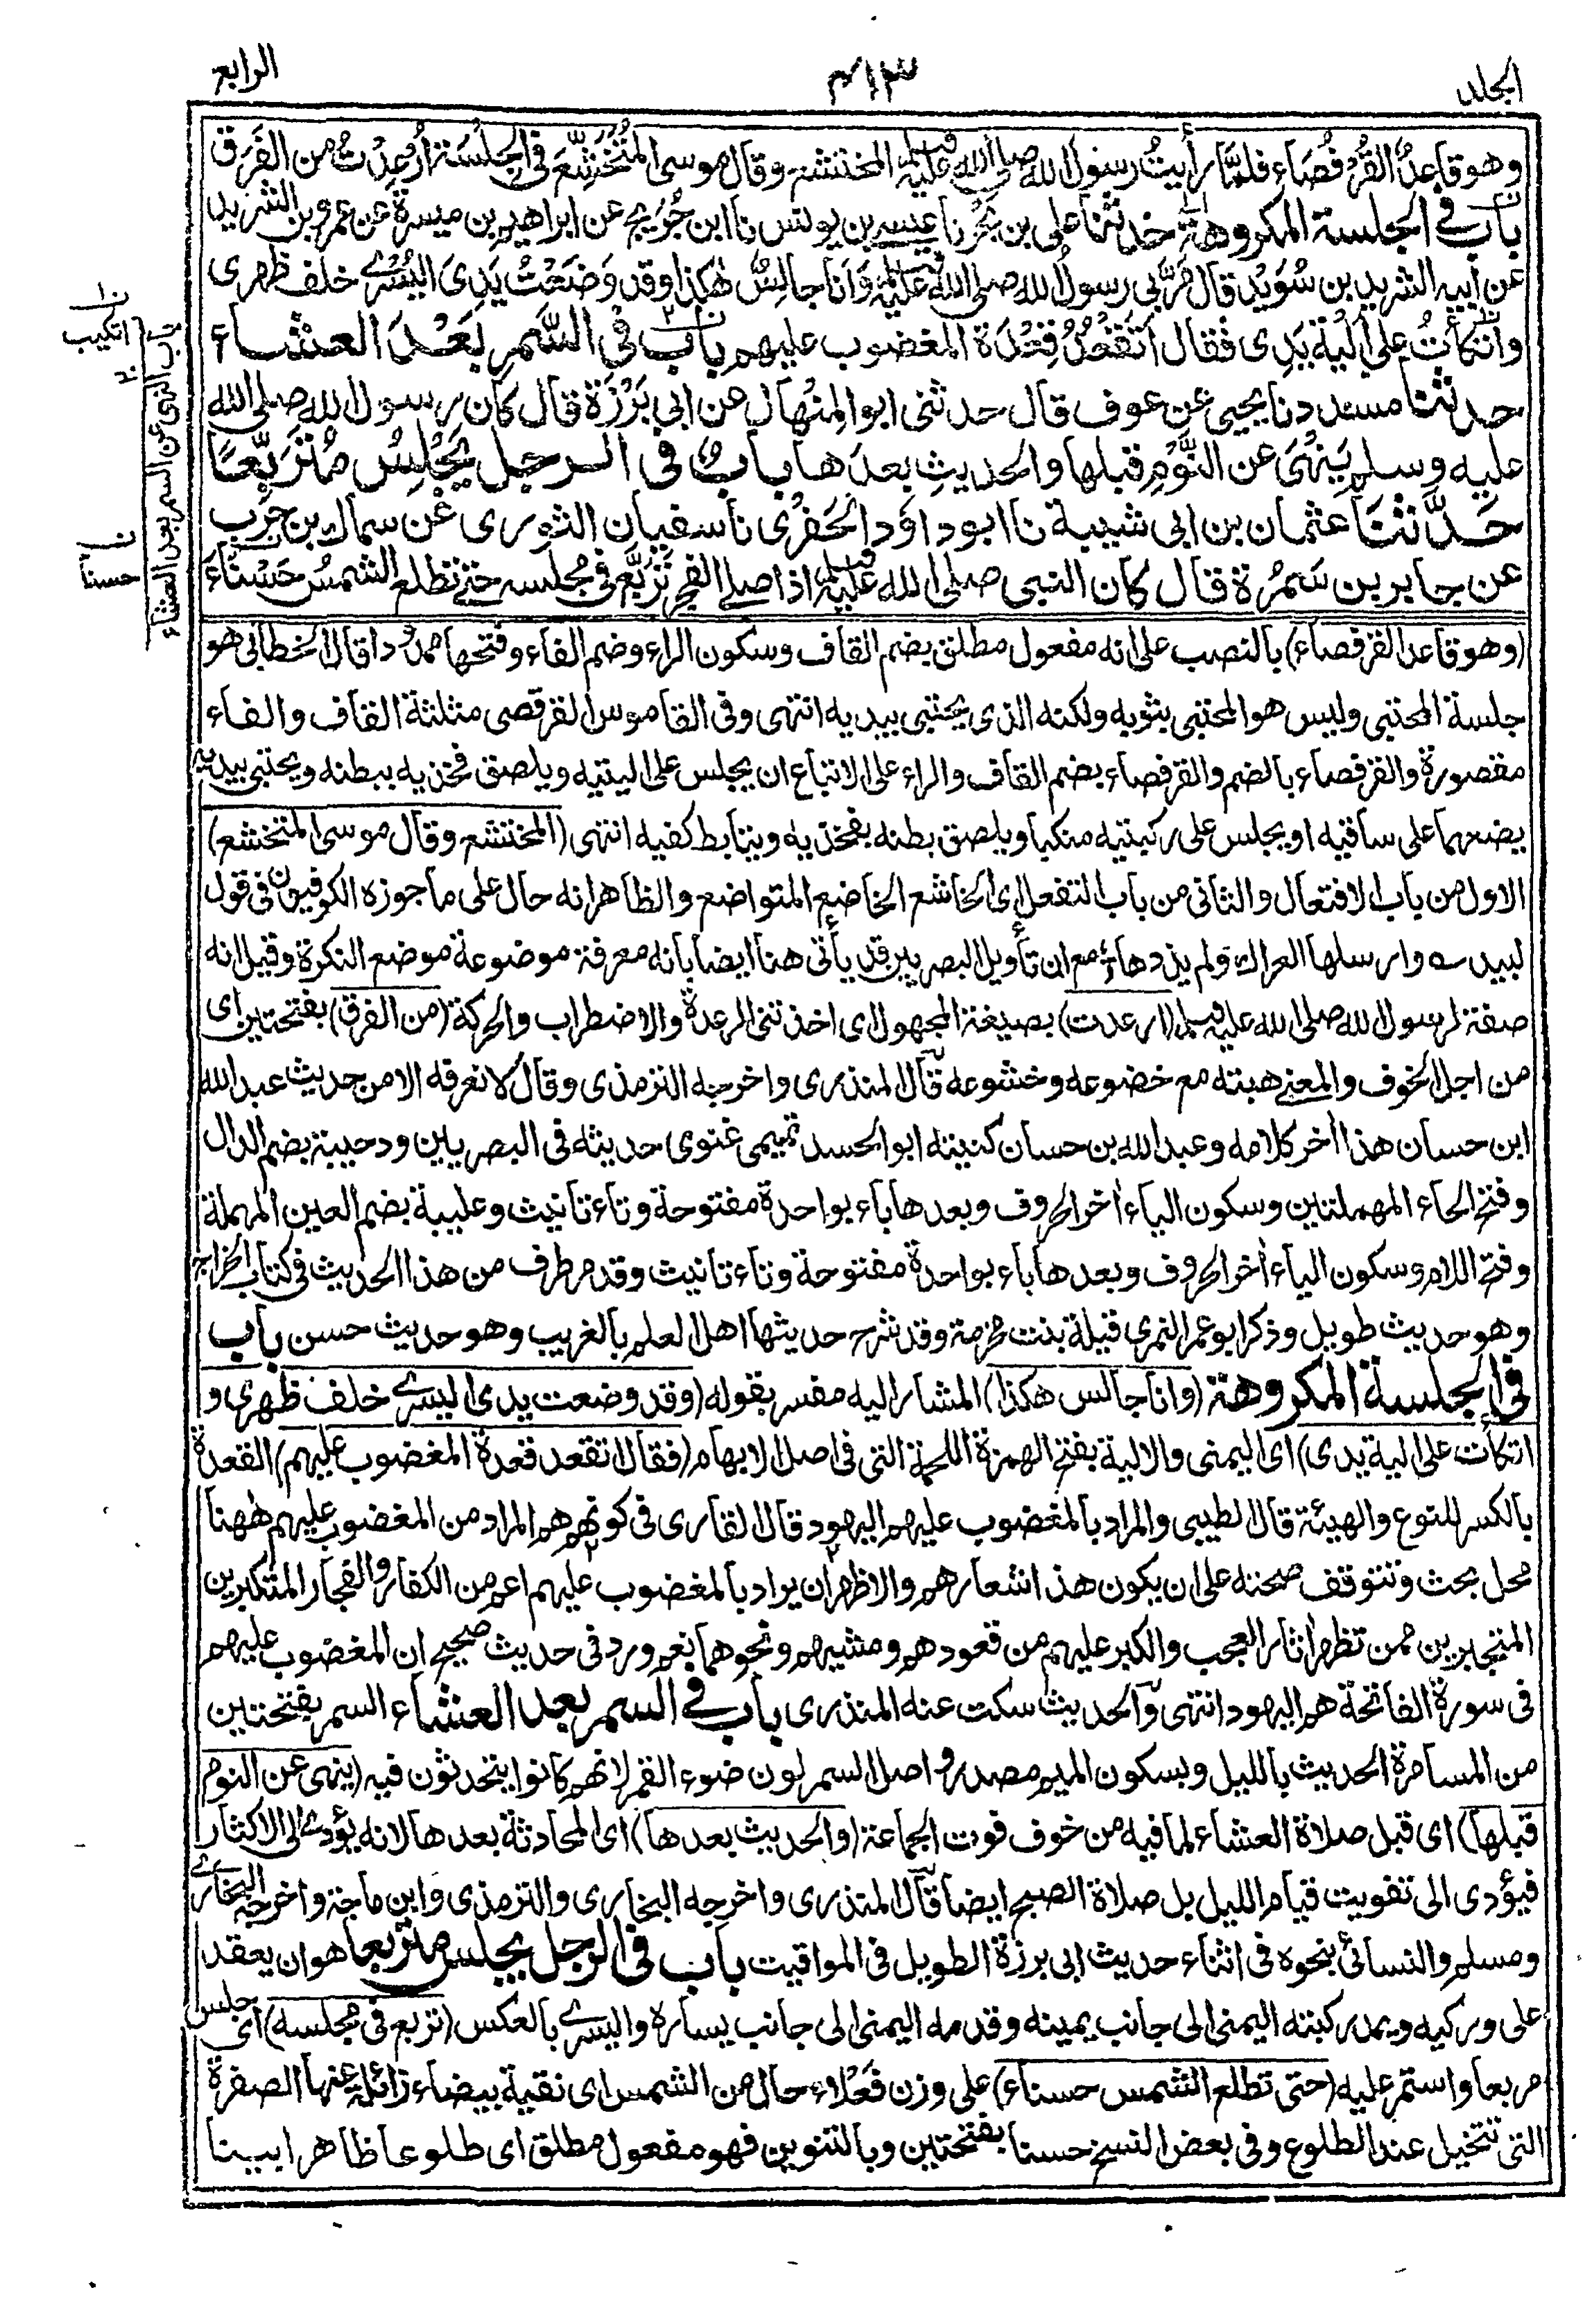 المجلد
الرابع
وهو قاعدٌ القُرْفُصَاء فلمَّا رأيتُ رسول الله صلى الله عليه وسلم المختشع وقال موسى المُتَخَشِّعَ في الجِلْسَة أُرْعِدْتُ من الفَرَق
باب في الجلسة المكروهة حدثنا علي بن بَحْر نا عيسى بن يونس نا ابن جُرَيج عن ابراهيم بن ميسرة عن عمرو بن الشريد
عن ابيه الشريد بن سُوَيْد قال مَرَّ بي رسول الله صلى الله عليه وسلم وَأنا جالسٌ هكذا وقد وَضَعْتُ يَدِيَ اليُسْرى خلف ظهري
وَاتَّكَأْتُ على أَلْيَة يَدِي فقال أَتَقْعُدُ قِعْدَةَ المغضوب عليهم باب في السَّمر بَعْدَ العشاء
حدثنا مسدد نا يحيى عن عوف قال حدثني ابو المِنْهال عن ابي بَرْزَة قال كان رسول الله صلى الله
عليه وسلم يَنْهَى عن النَّوْمِ قبلها والحديثِ بعدها بابٌ في الرجل يَجْلِسُ مُتَرَبِّعًا
حَدَّثَنَا عثمان بن ابي شيبة نا ابو داوَد الحَفَرِي نا سفيان الثوري عن سماك بن حَرْب
عن جابر بن سَمُرة قال كان النبي صلى الله عليه وسلم اذا صلى الفجر تَرَبَّع في مجلسه حتى تطلع الشمسُ حَسْنَاءَ
(وهو قاعد القرفصاء) بالنصب على انه مفعول مطلق بضم القاف وسكون الراء وضم الفاء وفتحها ممدودا قال الخطابي هو
جلسة المحتبي وليس هو المحتبي بثوبه ولكنه الذي يحتبي بيديه انتهى وفي القاموس القرفصى مثلثة القاف والفاء
مقصورة والقرفصاء بالضم والقرفصاء بضم القاف والراء على الاتباع ان يجلس على اليتيه ويلصق فخذيه ببطنه ويحتبي بيديه
يضعهما على ساقيه او يجلس على ركبتيه منكبا ويلصق بطنه بفخذيه ويتابط كفيه انتهى (المختشع وقال موسى المتخشع)
الاول من باب الافتعال والثاني من باب التفعل اي الخاشع الخاضع المتواضع والظاهر انه حال على ما جوزه الكوفيون في قول
لبيد وارسلها العراك ولم يذدها مع ان تأويل البصريين قد يأتي هنا ايضا بانه معرفة موضوعة موضع النكرة وقيل انه
صفة لرسول الله صلى الله عليه وسلم (ارعدت) بصيغة المجهول اي اخذتني الرعدة والاضطراب والحركة (من الفرق) بفتحتين اي
من اجل الخوف والمعنى هبته مع خضوعه وخشوعه قال المنذري واخرجه الترمذي وقال لا نعرفه الا من حديث عبد الله
ابن حسان هذا اخر كلامه وعبد الله بن حسان كنيته ابو الحسد تميمي غنوي حديثه في البصريين ودحيبة بضم الدال
وفتح الحاء المهملتين وسكون الياء اخر الحروف وبعدها باء بواحدة مفتوحة وتاء تانيث وعليبة بضم العين المهملة
وفتح اللام وسكون الياء اخر الحروف وبعدها باء بواحدة مفتوحة وتاء تانيث وقد مر طرف من هذا الحديث في كتاب الخراج
وهو حديث طويل وذكر ابو عمر النمري قيلة بنت مخرمة وقد شرح حديثها اهل العلم بالغريب وهو حديث حسن باب
في الجلسة المكروهة (وانا جالس هكذا) المشار اليه مفسر بقوله (وقد وضعت يدي اليسرى خلف ظهري و
اتكأت على الية يدي) اي اليمنى والالية بفتح الهمزة اللحمة التي في اصل الابهام (فقال اتقعد قعدة المغضوب عليهم) القعدة
بالكسر للنوع والهيئة قال الطيبي والمراد بالمغضوب عليهم اليهود قال القاري في كونهم هم المراد من المغضوب عليهم ههنا
محل بحث وتتوقف صحته على ان يكون هذا شعارهم والاظهر ان يراد بالمغضوب عليهم اعم من الكفار والفجار المتكبرين
المتجبرين ممن تظهر اثار العجب والكبر عليهم من قعودهم ومشيهم ونحوهما نعم ورد في حديث صحيح ان المغضوب عليهم
في سورة الفاتحة هم اليهود انتهى والحديث سكت عنه المنذري باب في السمر بعد العشاء السمر بفتحتين
من المسامرة الحديث بالليل وبسكون الميم مصدر واصل السمر لون ضوء القمر لانهم كانوا يتحدثون فيه (ينهى عن النوم
قبلها) اي قبل صلاة العشاء لما فيه من خوف فوت الجماعة (والحديث بعدها) اي المحادثة بعدها لانه يؤدي الى الاكثار
فيؤدي الى تفويت قيام الليل بل صلاة الصبح ايضا قال المنذري واخرجه البخاري والترمذي وابن ماجة واخرجه البخاري
ومسلم والنسائي بنحوه في اثناء حديث ابي برزة الطويل في المواقيت باب في الرجل يجلس متربعا هو ان يعقد
على وركيه ويمد ركبته اليمنى الى جانب يمينه وقدمه اليمنى الى جانب يساره واليسرى بالعكس (تربع في مجلسه) اي جلس
مربعا واستمر عليه (حتى تطلع الشمس حسناء) على وزن فَعْلاء حال من الشمس اي نقية بيضاء زائلة عنها الصفرة
التي تتخيل عند الطلوع وفي بعض النسخ حسنا بفتحتين وبالتنوين فهو مفعول مطلق اي طلوعا ظاهرا بينا
باب النهي عن السمر بعد العشاء
حسناً